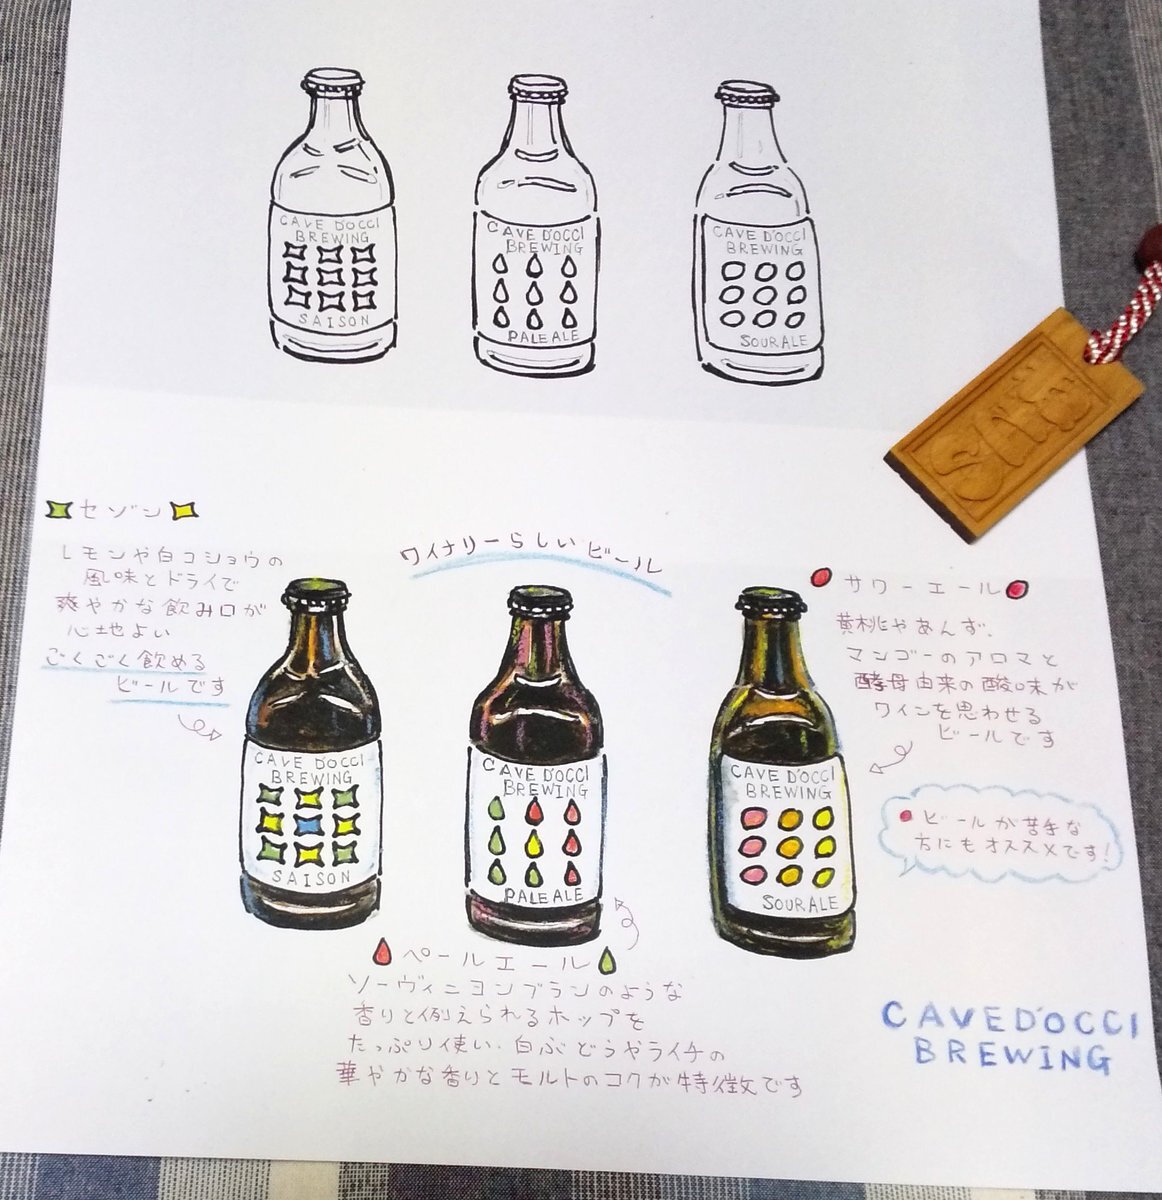 CAVE D'OCCI
BREWING
SAISON
CAVE D'OCCI
BREWING
PALE ALE
CAVE D'OCCI
BREWING
SOUR ALE
セゾン
レモンや白コショウの
風味とドライで
爽やかな飲み口が
心地よい
ごくごく飲める
ビールです
ワイナリーらしいビール
サワーエール
黄桃やあんず、
マンゴーのアロマと
酵母由来の酸味が
ワインを思わせる
ビールです
ビールが苦手な
方にもオススメです!
CAVE D'OCCI
BREWING
SAISON
CAVE D'OCCI
BREWING
PALE ALE
CAVE D'OCCI
BREWING
SOUR ALE
ペールエール
ソーヴィニヨンブランのような
香りと例えられるホップを
たっぷり使い、白ぶどうやライチの
華やかな香りとモルトのコクが特徴です
CAVE D'OCCI
BREWING